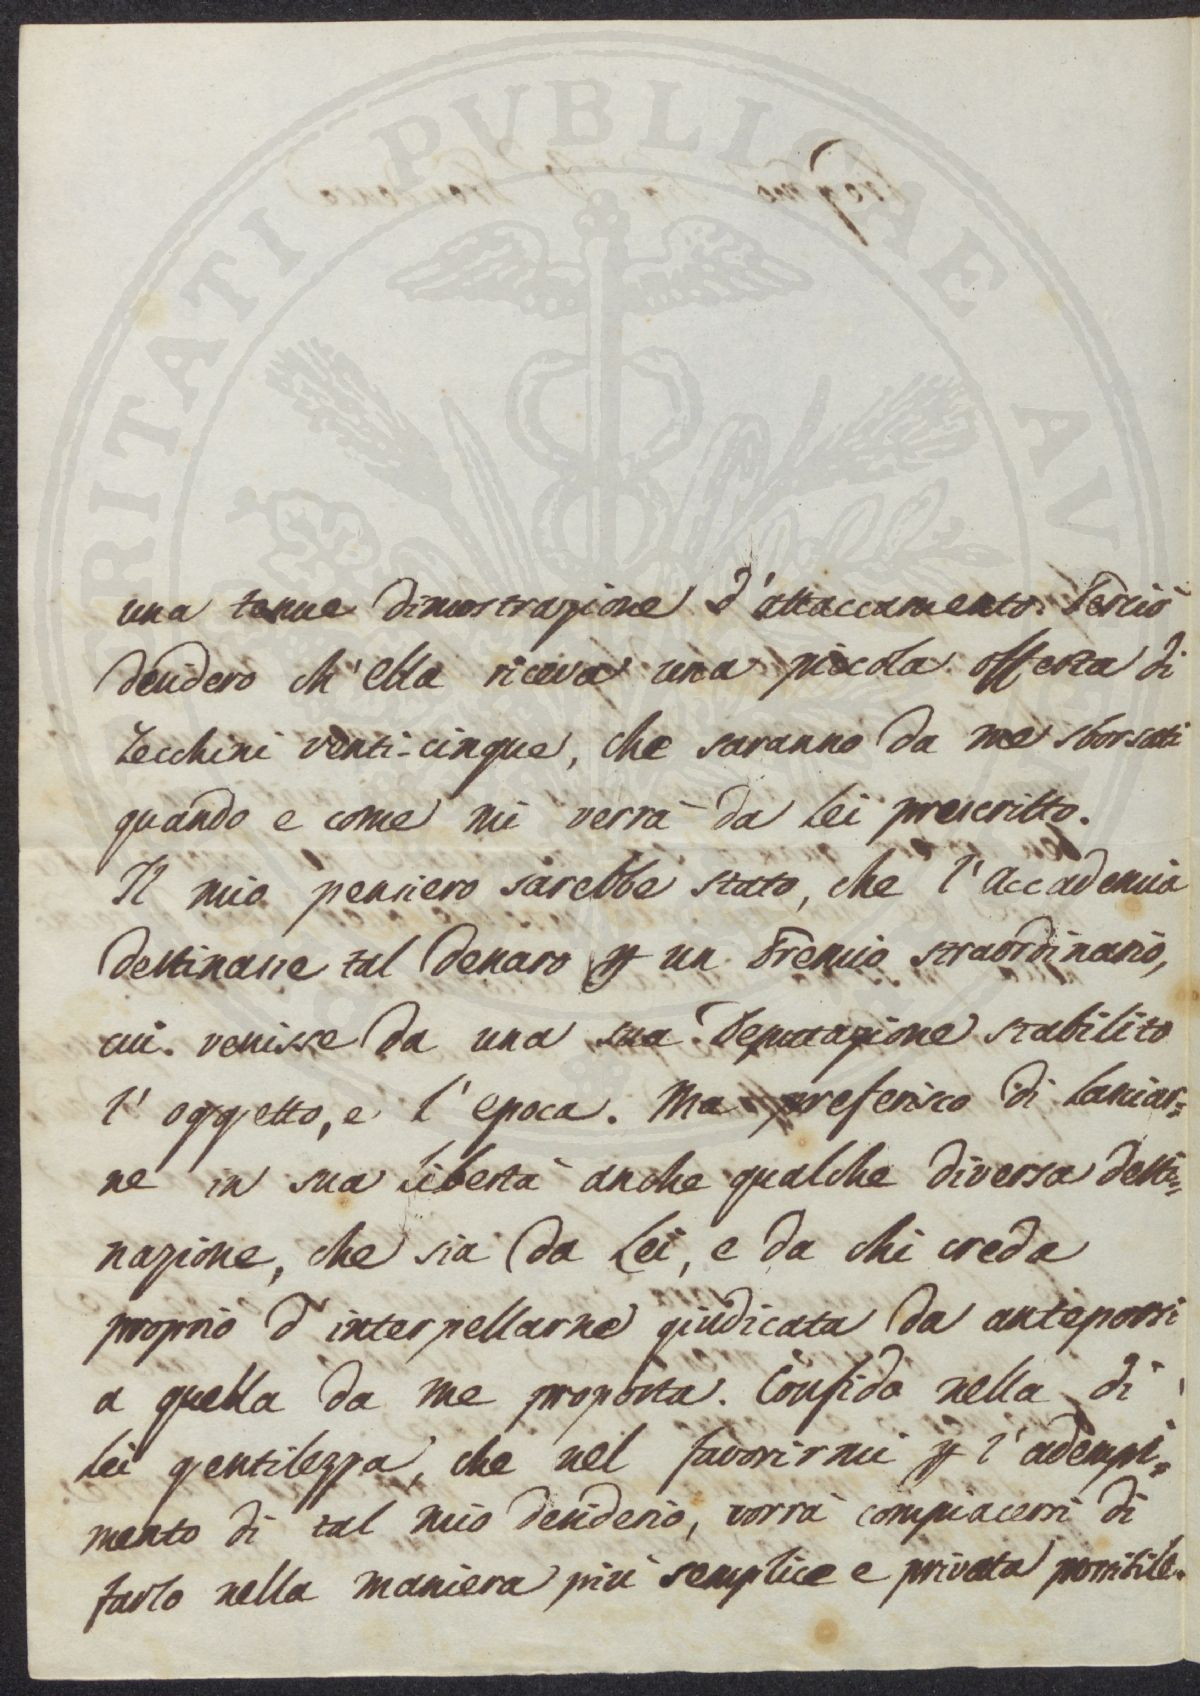 PVBLICAE AV
RITATI
una tenue dimostrazione d'attaccamento. Perciò
desidero ch'Ella riceva una piccola offerta di
Zecchini venti-cinque, che saranno da me sborsati
quando e come mi verrà da Lei prescritto.
Il mio pensiero sarebbe stato, che l'Accademia
destinasse tal denaro p un Premio straordinario,
cui venisse da una sua Deputazione stabilito
l'oggetto, e l'epoca. Ma preferisco di lasciar=
ne in sua libertà anche qualche diversa desti=
nazione, che sia da Lei, e da chi creda
proprio d'interpellarne giudicata da anteporsi
a quella da me proposta. Confido nella di
Lei gentilezza, che nel favorirmi p l'adempi=
mento di tal mio desiderio, vorrà compiacersi di
farlo nella maniera più semplice e privata possibile.